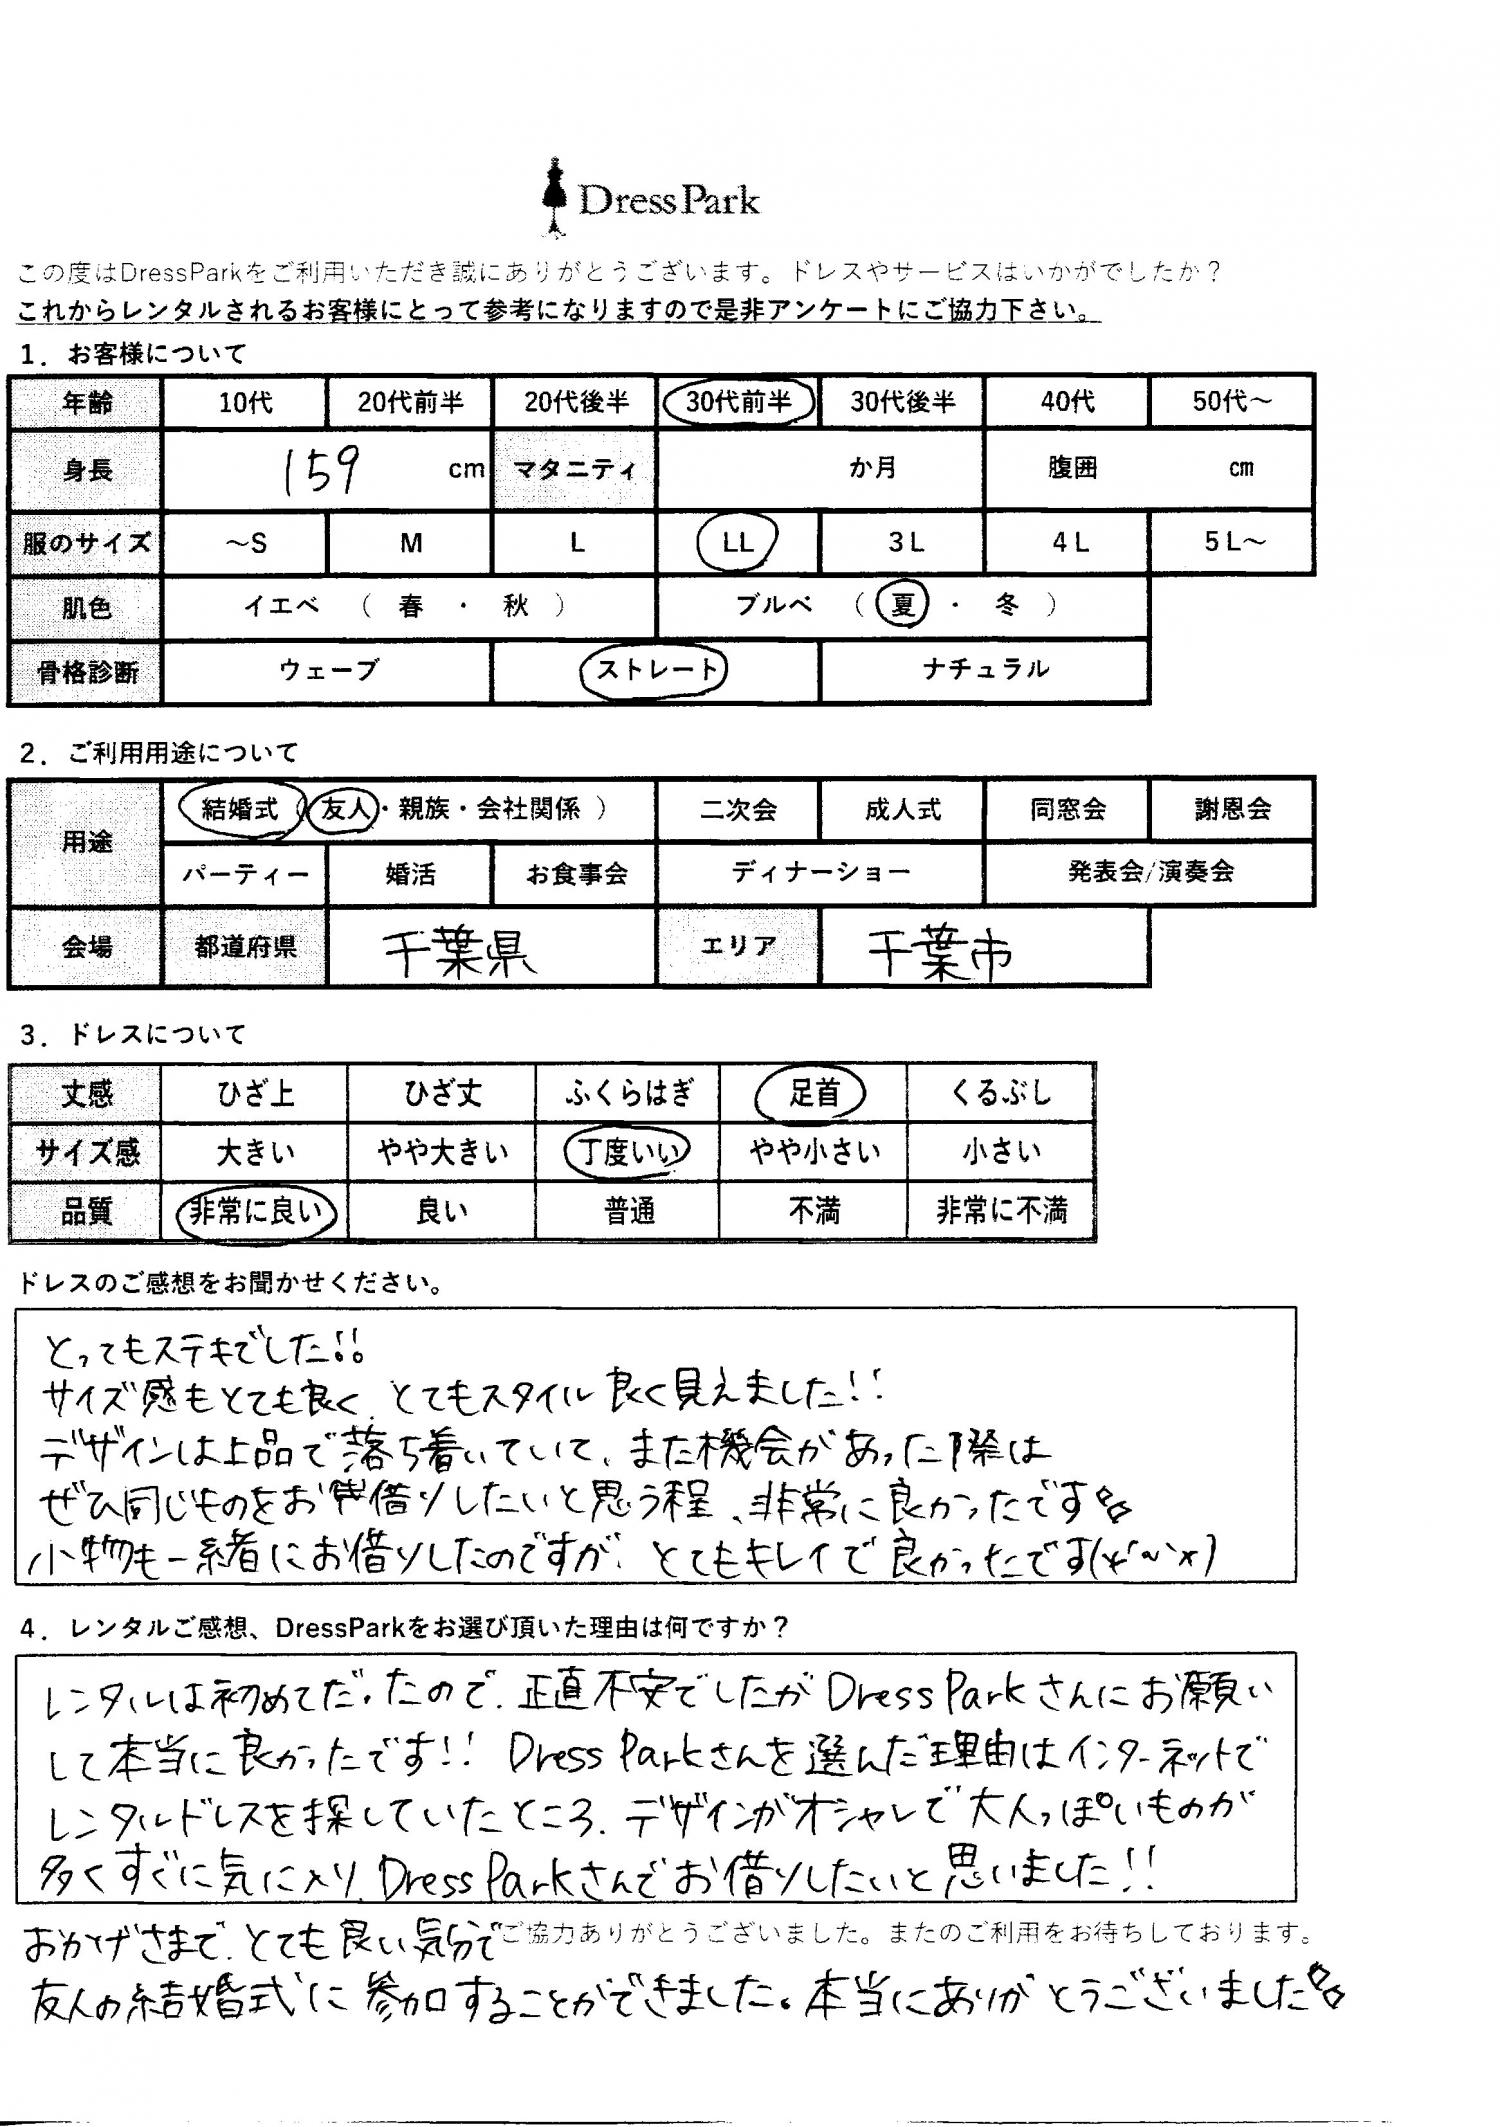 DressPark
この度はDressParkをご利用いただき誠にありがとうございます。ドレスやサービスはいかがでしたか？
これからレンタルされるお客様にとって参考になりますので是非アンケートにご協力下さい。
1．お客様について
年齢 10代 20代前半 20代後半 30代前半 30代後半 40代 50代～
身長 159 cm マタニティ か月 腹囲 cm
服のサイズ ～S M L LL 3L 4L 5L～
肌色 イエベ （ 春 ・ 秋 ） ブルベ （ 夏 ・ 冬 ）
骨格診断 ウェーブ ストレート ナチュラル
2．ご利用用途について
用途 結婚式（友人・親族・会社関係 ） 二次会 成人式 同窓会 謝恩会
パーティー 婚活 お食事会 ディナーショー 発表会/演奏会
会場 都道府県 千葉県 エリア 千葉市
3．ドレスについて
丈感 ひざ上 ひざ丈 ふくらはぎ 足首 くるぶし
サイズ感 大きい やや大きい 丁度いい やや小さい 小さい
品質 非常に良い 良い 普通 不満 非常に不満
ドレスのご感想をお聞かせください。
とってもステキでした!!
サイズ感もとても良く、とてもスタイル良く見えました!!
デザインは上品で落ち着いていて、また機会があった際は
ぜひ同じものをお借りしたいと思う程、非常に良かったです
小物も一緒にお借りしたのですが、とてもキレイで良かったです(*´~`*)
4．レンタルご感想、DressParkをお選び頂いた理由は何ですか？
レンタルは初めてだったので、正直不安でしたがDressParkさんにお願い
して本当に良かったです!! DressParkさんを選んだ理由はインターネットで
レンタルドレスを探していたところ、デザインがオシャレで大人っぽいものが
多くすぐに気に入り、DressParkさんでお借りしたいと思いました!!
ご協力ありがとうございました。またのご利用をお待ちしております。
おかげさまで、とても良い気分で
友人の結婚式に参加することができました。本当にありがとうございました